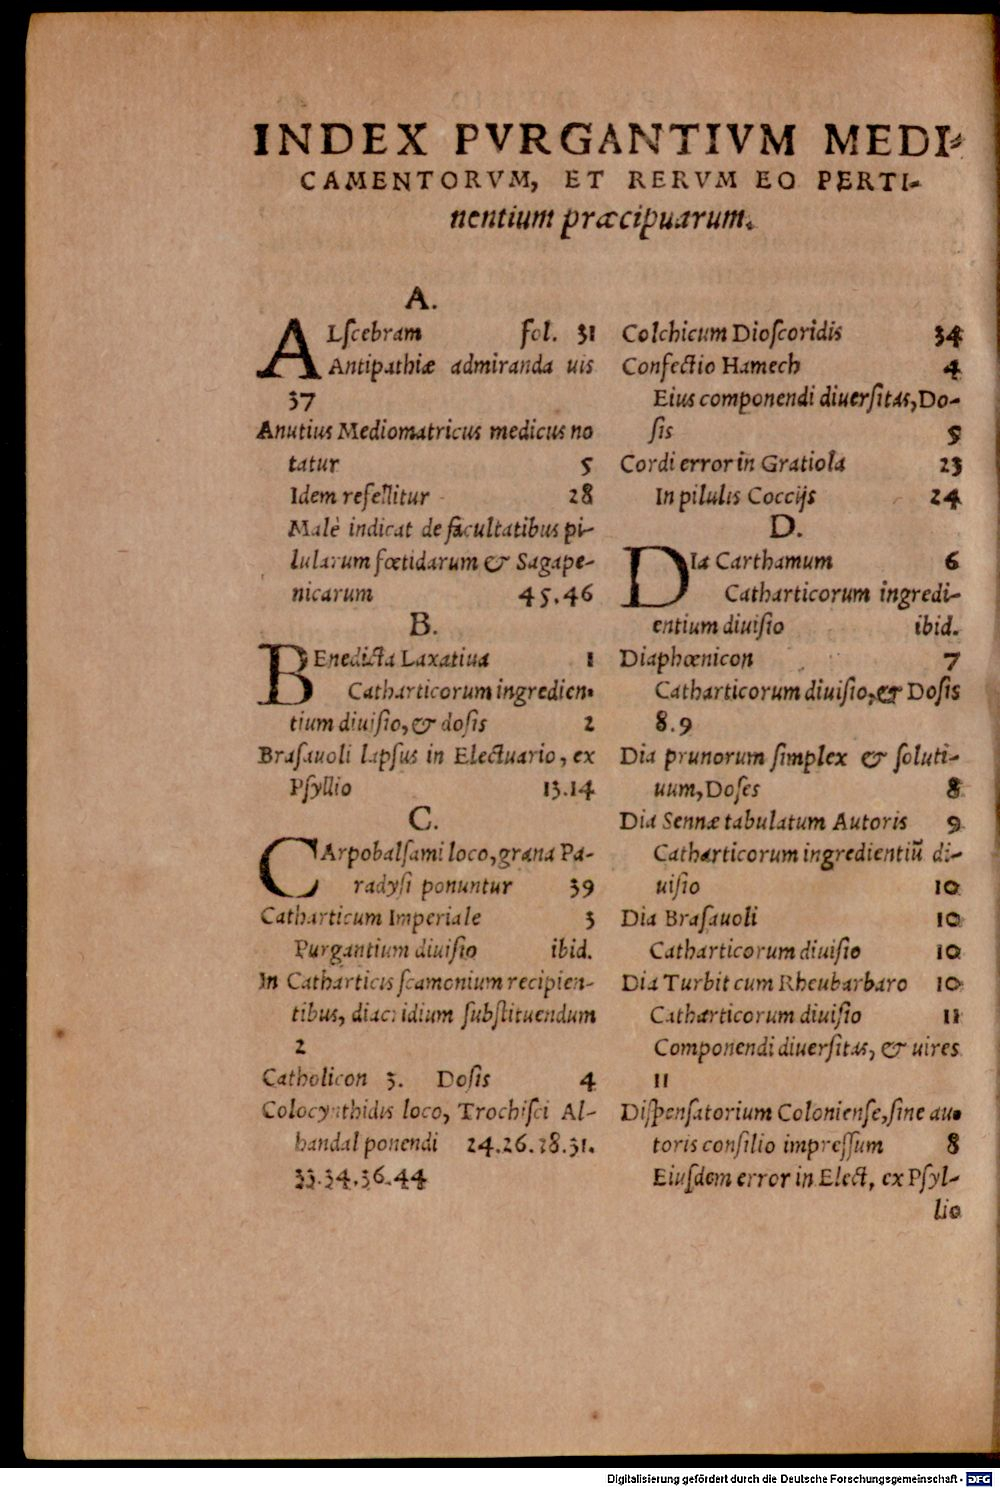 INDEX PVRGANTIVM MEDI-
CAMENTORVM, ET RERVM EO PERTI-
nentium præcipuarum.
A.
ALſcebram fol. 31
Antipathiæ admiranda uis
37
Anutius Mediomatricus medicus no
tatur 5
Idem refellitur 28
Malè indicat de facultatibus pi-
lularum fœtidarum & Sagape-
nicarum 45.46
B.
BEnedicta Laxatiua 1
Catharticorum ingredien-
tium diuiſio, & doſis 2
Braſauoli lapſus in Electuario, ex
Pſyllio 13.14
C.
CArpobalſami loco, grana Pa-
radyſi ponuntur 39
Catharticum Imperiale 3
Purgantium diuiſio ibid.
In Catharticis ſcamonium recipien-
tibus, diacridium ſubſtituendum
2
Catholicon 3. Doſis 4
Colocynthidis loco, Trochiſci Al-
handal ponendi 24.26.28.31.
33.34.36.44
Colchicum Dioſcoridis 34
Confectio Hamech 4
Eius componendi diuerſitas, Do-
ſis 5
Cordi error in Gratiola 23
In pilulis Coccijs 24
D.
DIa Carthamum 6
Catharticorum ingredi-
entium diuiſio ibid.
Diaphœnicon 7
Catharticorum diuiſio, & Doſis
8.9
Dia prunorum ſimplex & ſoluti-
uum, Doſes 8
Dia Sennæ tabulatum Autoris 9
Catharticorum ingredientiū di-
uiſio 10
Dia Braſauoli 10
Catharticorum diuiſio 10
Dia Turbit cum Rheubarbaro 10
Catharticorum diuiſio 11
Componendi diuerſitas, & uires
11
Diſpenſatorium Colonienſe, ſine au-
toris conſilio impreſſum 8
Eiuſdem error in Elect, ex Pſyl-
lio
Digitalisierung gefördert durch die Deutsche Forschungsgemeinschaft - DFG